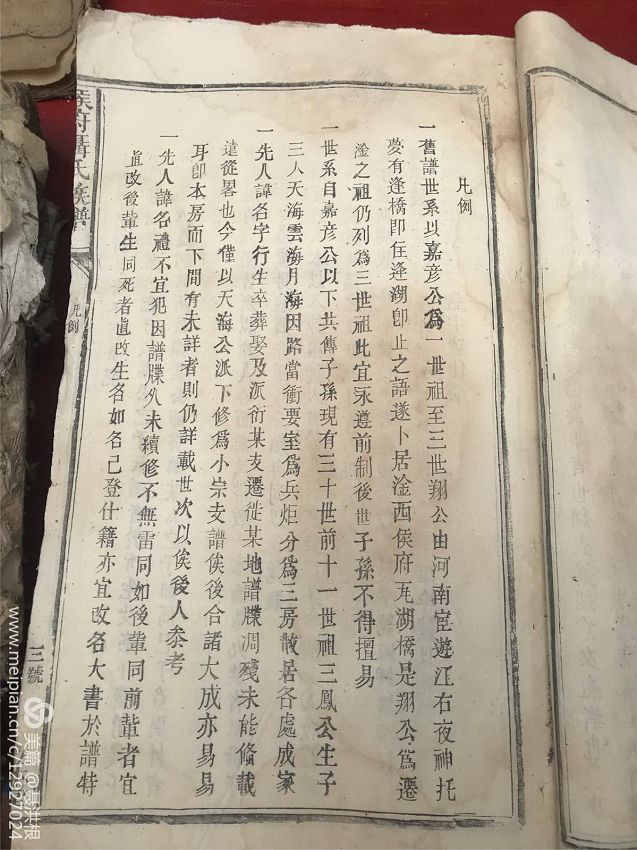 凡例
一舊譜世系以嘉彦公爲一世祖至三世翔公由河南宦遊江右夜神托
夢有逢橋即住逢湖卽止之語遂卜居淦西侯府㐬湖橋是翔公爲遷
淦之祖仍列爲三世祖此宜永遵前制後世子孫不得擅易
一世系自嘉彦公以下共傳子孫現有三十世前十一世祖三鳳公生子
三人天海雲海月海因路當衝要室爲兵炬分爲三房散居各處成家
一先人諱名字行生卒葬娶及派衍某支遷徙某地譜牒凋殘未能偹載
遠從畧也今僅以天海公派下修爲小宗支譜俟後合諸大成亦易易
耳卽本房而下間有未詳者則仍詳載世次以俟後人叅考
一先人諱名禮不宜犯因譜牒久未續修不無雷同如後輩同前輩者宜
直改後輩生同死者直改生名如名已登仕籍亦宜改名大書於譜特
侯府
氏族譜
凡例
三號
www.meipian.cn/c/12927024
美篇 @聂洪根